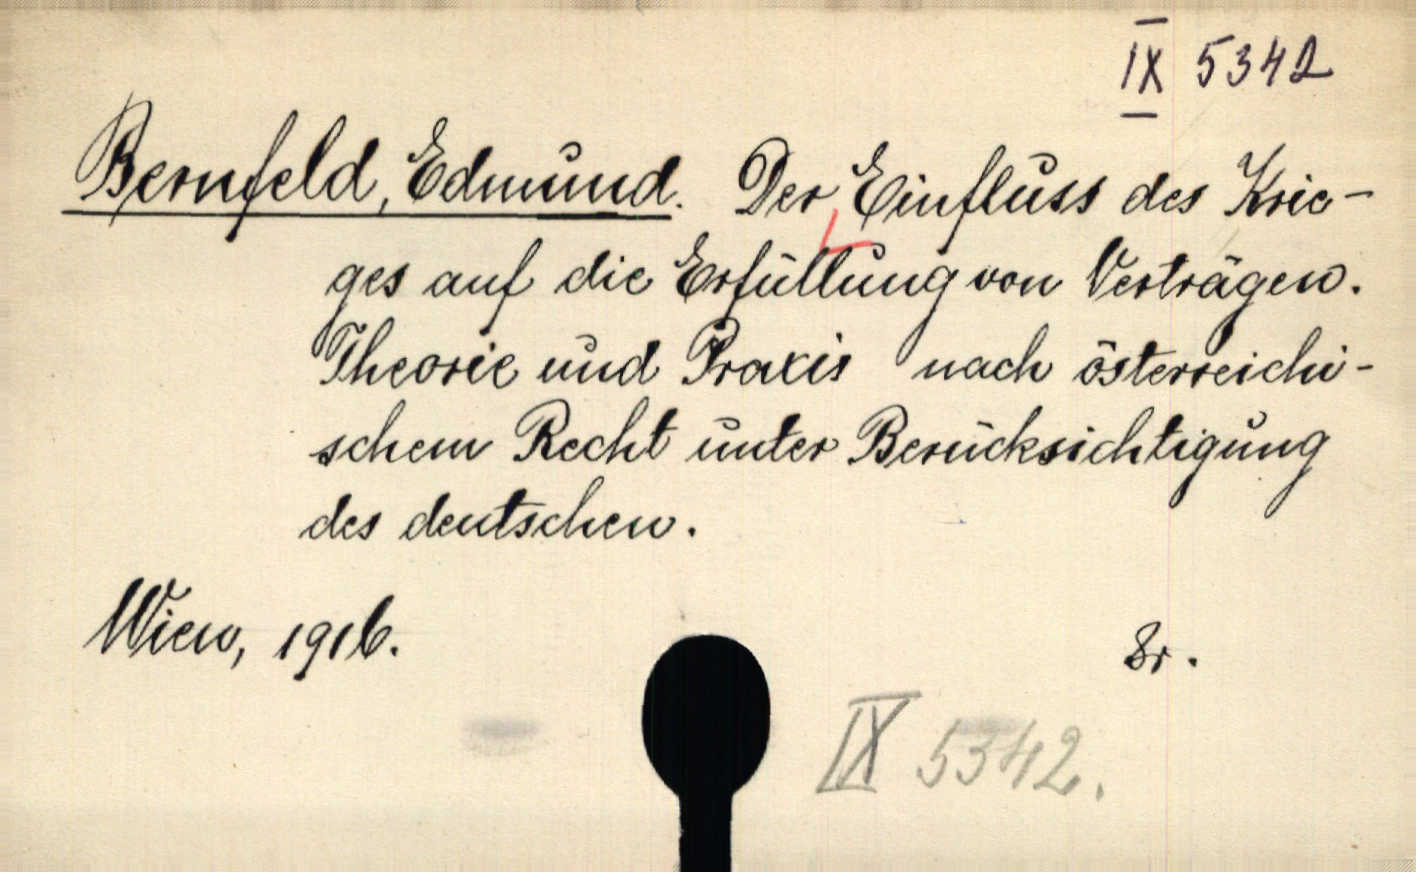 IX 5342
Bernfeld, Edmund. Der Einfluss des Krie-
ges auf die Erfüllung von Verträgen.
Theorie und Praxis nach österreichi-
schem Recht unter Berücksichtigung
des deutschen.
Wien, 1916.
8r.
IX 5342.